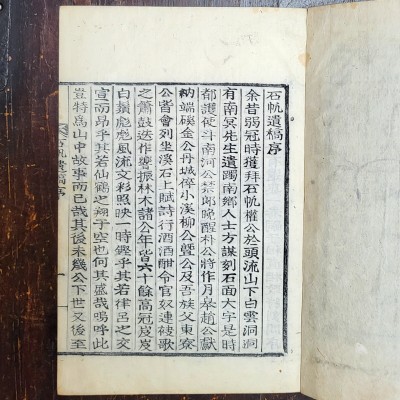 石帆遺稿序
余昔弱冠時獲拜石帆權公於頭流山下白雲洞洞
有南冥先生遺躅南鄉人士方謀刻石面大字是時
都護使斗南河公禁郞晩醒朴公將作月皋趙公獻
納端磎金公丹城倅小溪柳公曁公及吾族父東寮
公皆會列坐溪石上賦詩行酒酒酣令官奴連袂歌
之簫鼓迭作響振林木諸公年皆六十餘高冠岌岌
白鬚彪彪風流文彩照映一時鏗乎其若律呂之交
宣而昂乎其若仙鶴之翔于空也何其盛哉嗚呼此
豈特爲山中故事而已哉其後未幾公下世又後至
石帆遺稿序
一